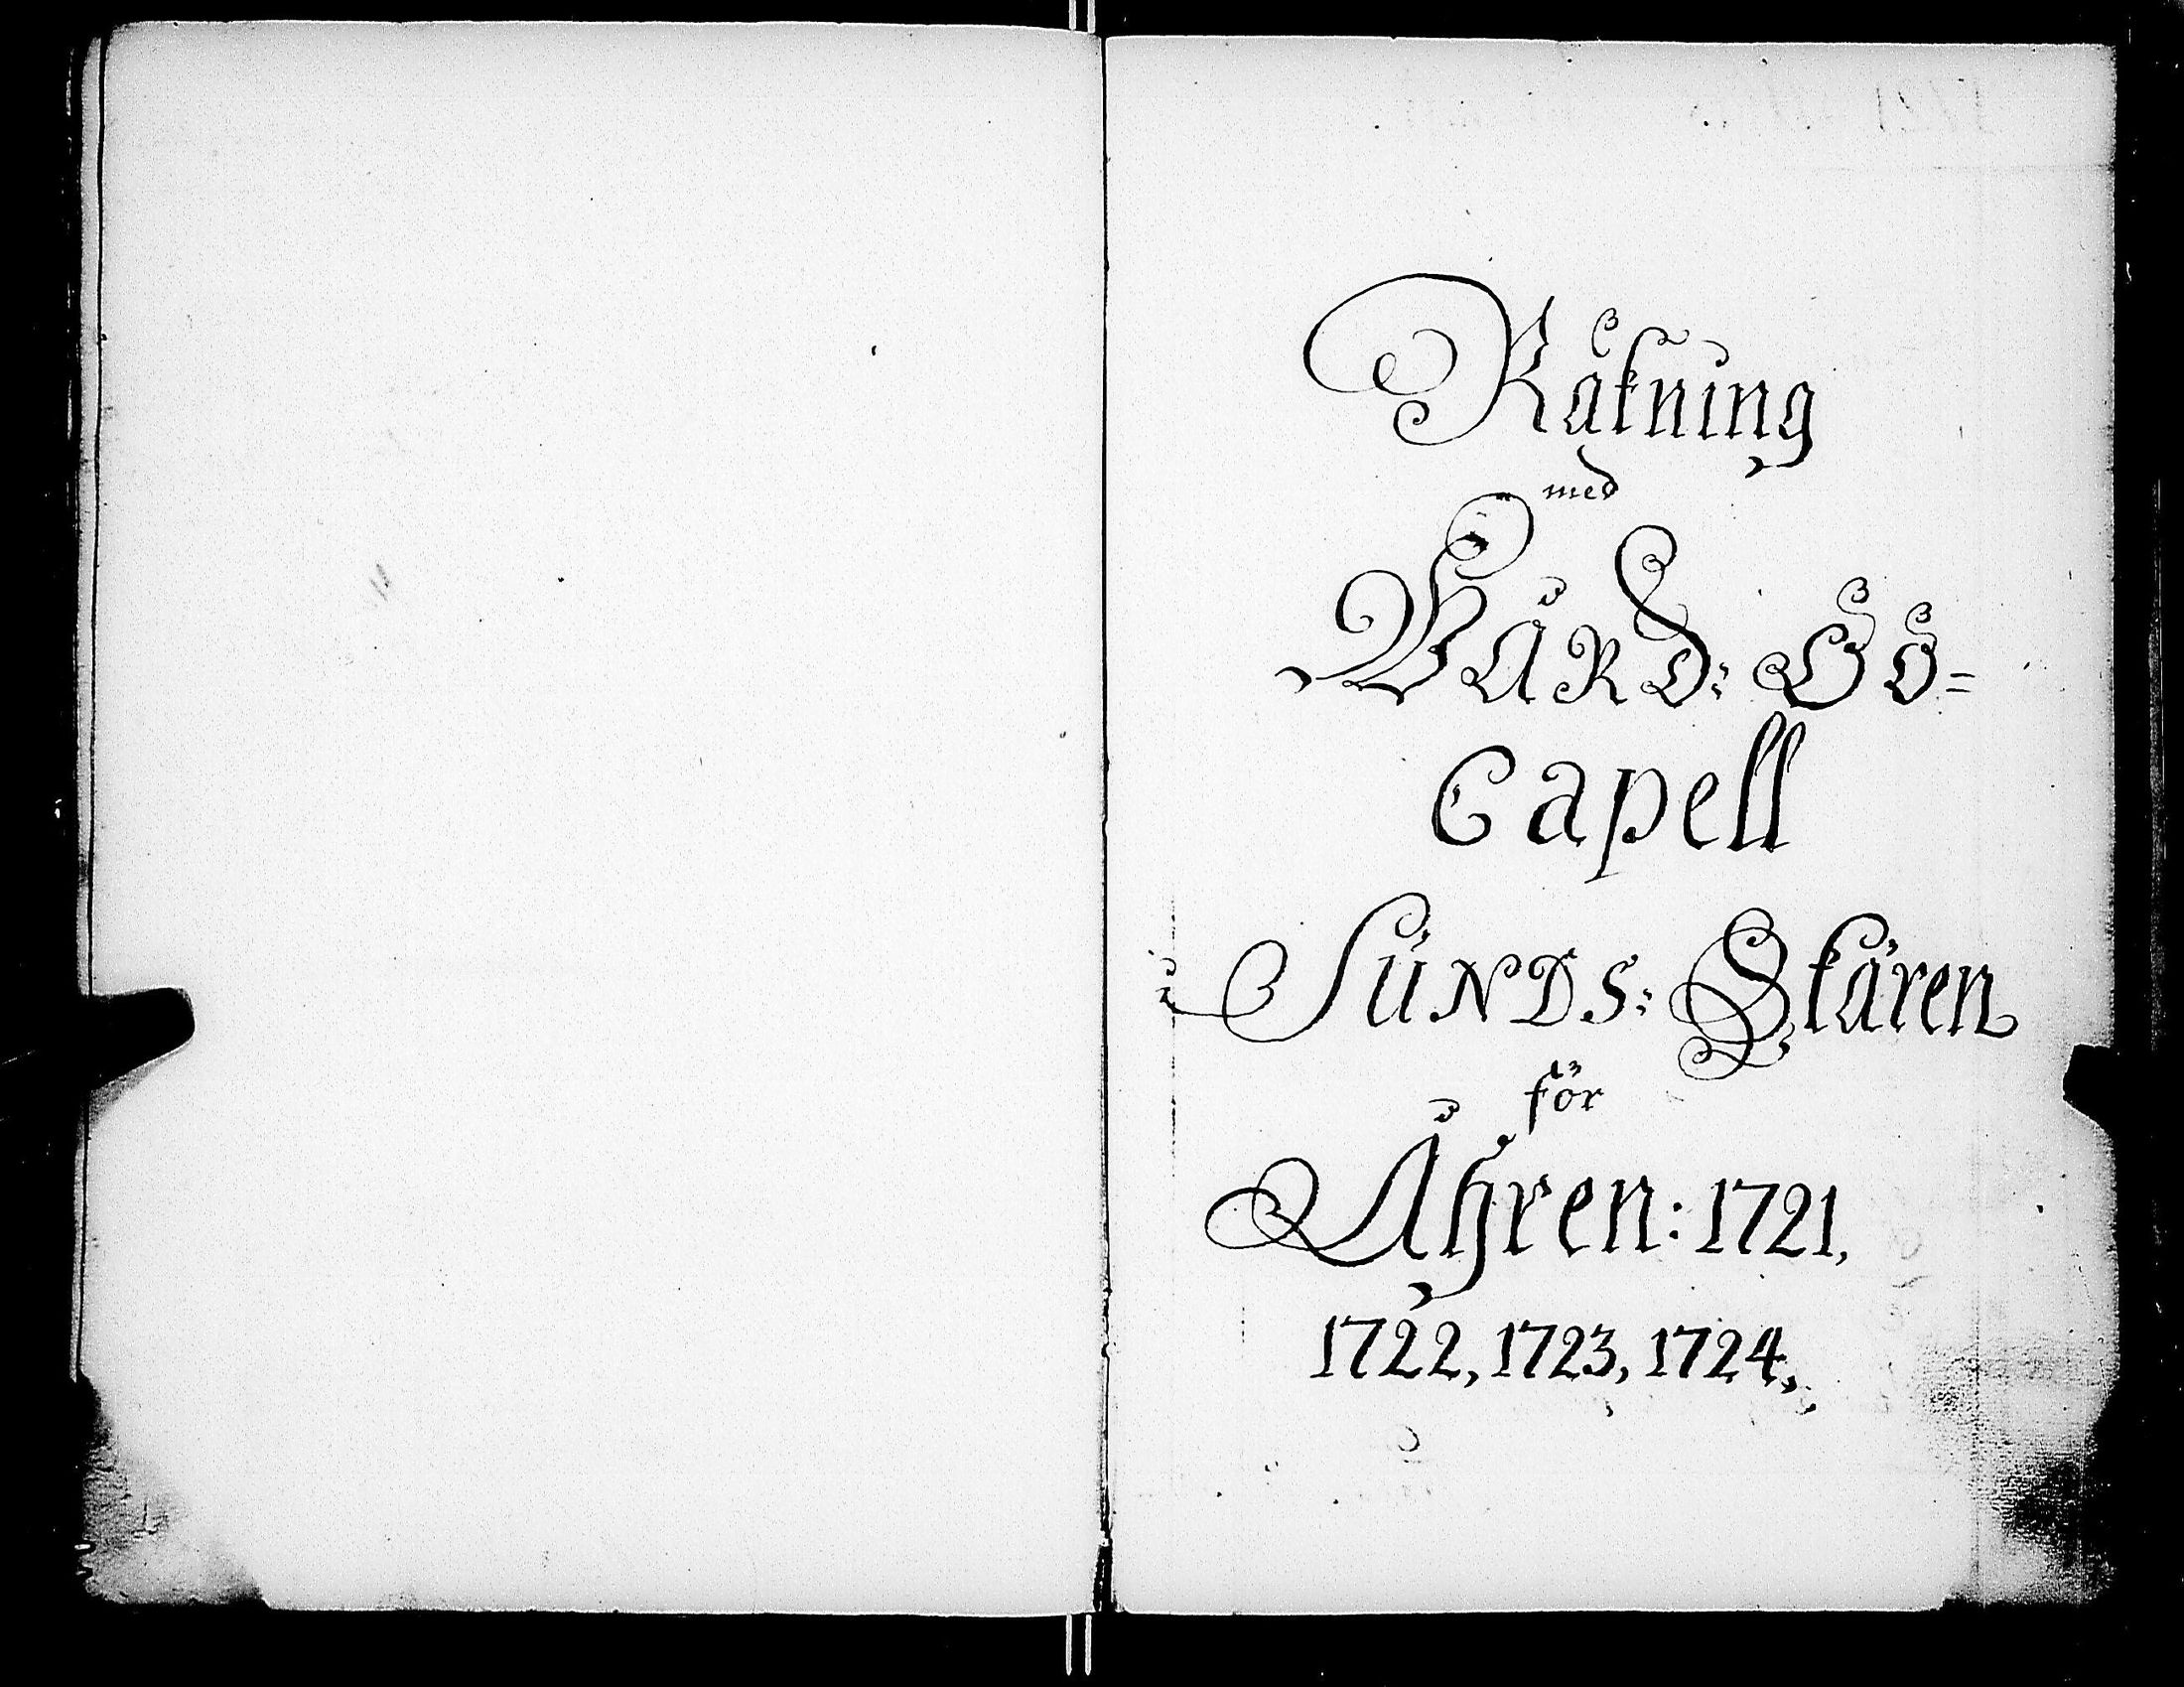 Räkning
med
Wård: Öö=
Capell
i Sunds: Skären
för
Åhren: 1721,
1722, 1723, 1724,